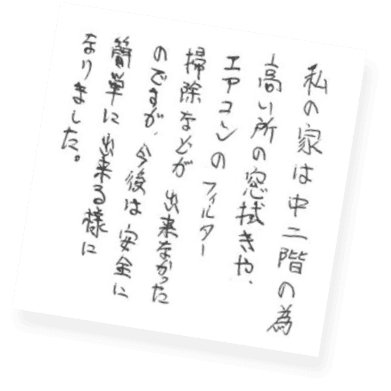 私の家は中二階の為
高い所の窓拭きや、
エアコンのフィルター
掃除などが出来なかった
のですが、今後は安全に
簡単に出来る様に
なりました。